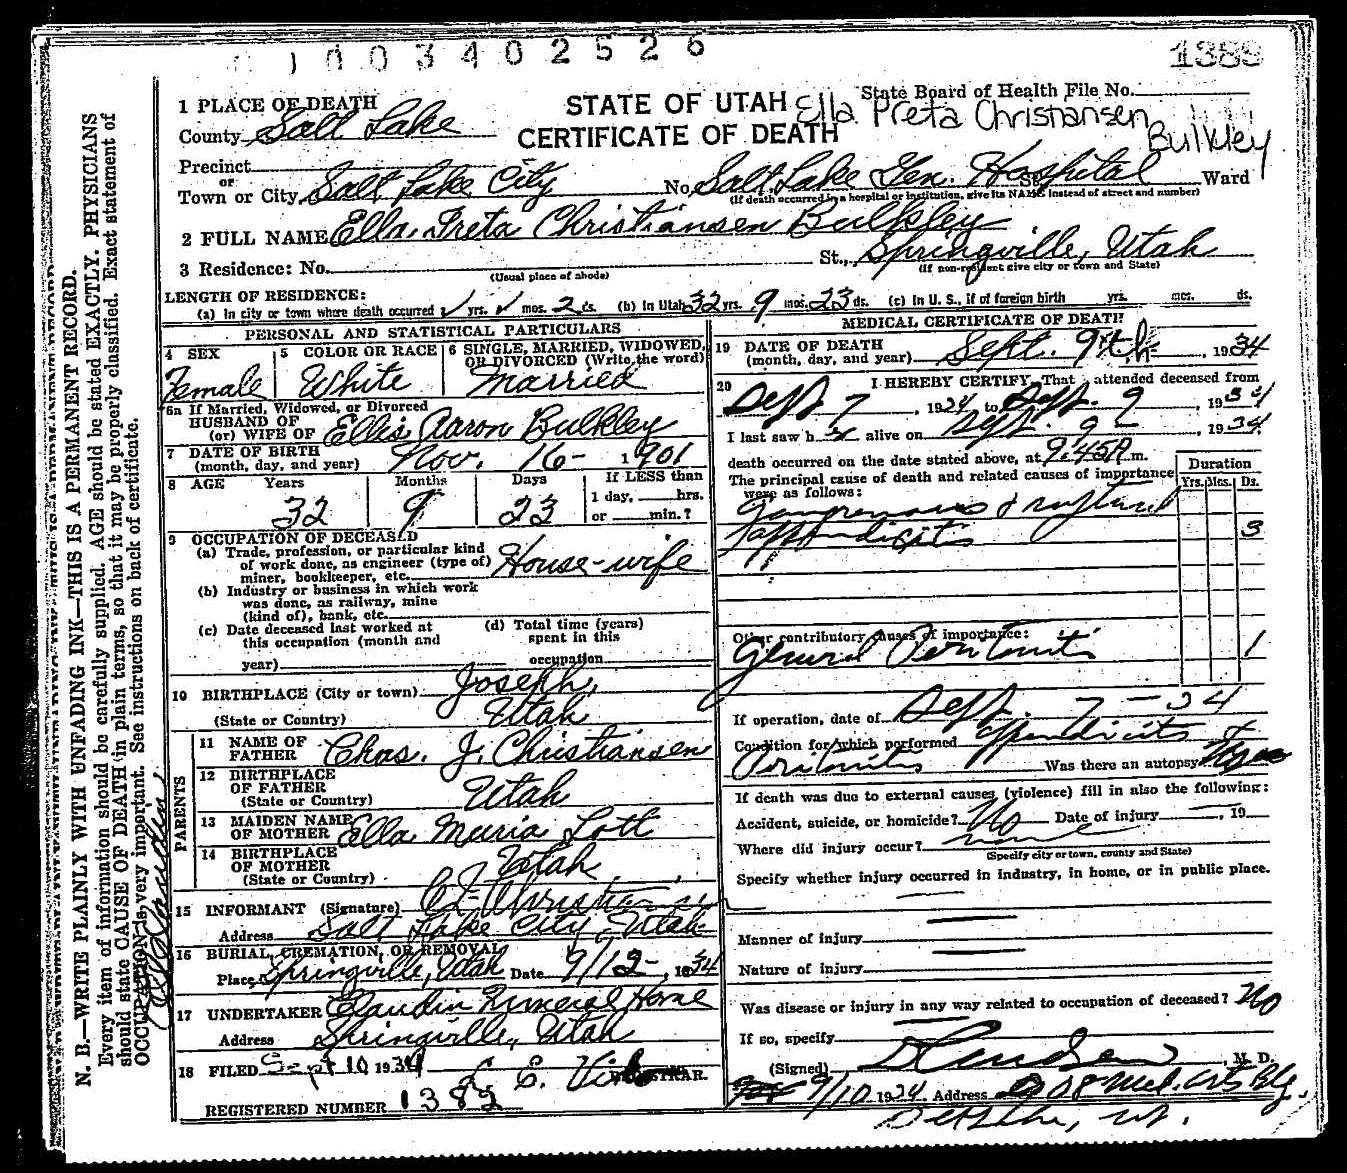 1003402526
1389
1 PLACE OF DEATH
County Salt Lake
STATE OF UTAH
CERTIFICATE OF DEATH
State Board of Health File No.
Ella Preta Christiansen
Bulkley
Precinct
or
Town or City Salt Lake City No. Salt Lake Gen. Hospital St. Ward
(If death occurred in a hospital or institution, give its NAME instead of street and number)
2 FULL NAME Ella Preta Christiansen Bulkley
3 Residence: No. St., Springville, Utah
(Usual place of abode) (If non-resident give city or town and State)
LENGTH OF RESIDENCE:
(a) In city or town where death occurred yrs. mos. 2 ds. (b) In Utah 32 yrs. 9 mos. 23 ds. (c) In U. S., if of foreign birth yrs. mos. ds.
PERSONAL AND STATISTICAL PARTICULARS
4 SEX
Female
5 COLOR OR RACE
White
6 SINGLE, MARRIED, WIDOWED,
OR DIVORCED (Write the word)
Married
6a If Married, Widowed, or Divorced
HUSBAND OF
(or) WIFE OF Ellis Aaron Bulkley
7 DATE OF BIRTH
(month, day, and year) Nov. 16- 1901
8 AGE Years Months Days If LESS than
1 day, hrs.
32 9 23 or min.?
9 OCCUPATION OF DECEASED
(a) Trade, profession, or particular kind
of work done, as engineer (type of)
miner, bookkeeper, etc. House-wife
(b) Industry or business in which work
was done, as railway, mine
(kind of), bank, etc.
(c) Date deceased last worked at
this occupation (month and
year)
(d) Total time (years)
spent in this
occupation
10 BIRTHPLACE (City or town) Joseph,
(State or Country) Utah
PARENTS
11 NAME OF
FATHER Chas. J. Christiansen
12 BIRTHPLACE
OF FATHER
(State or Country) Utah
13 MAIDEN NAME
OF MOTHER Ella Maria Lott
14 BIRTHPLACE
OF MOTHER
(State or Country) Utah
15 INFORMANT (Signature) C J Christiansen
Address Salt Lake City, Utah
16 BURIAL, CREMATION, OR REMOVAL
Place Springville, Utah Date 9/12- , 1934
17 UNDERTAKER Claudin Funeral Home
Address Springville, Utah
18 FILED Sept 10 1934
REGISTRAR.
REGISTERED NUMBER 1382
MEDICAL CERTIFICATE OF DEATH
19 DATE OF DEATH
(month, day, and year) Sept. 9th , 1934
20 I HEREBY CERTIFY, That I attended deceased from
Sept 7 , 1934 to Sept. 9 , 1934
I last saw her alive on Sept. 9 - , 1934
death occurred on the date stated above, at 9:45 P m.
The principal cause of death and related causes of importance
were as follows:
Duration
Yrs. Mos. Ds.
Gangrenous & ruptured
appendicitis 3
Other contributory causes of importance:
General Peritonitis 1
If operation, date of Sept. 7 - 34
Condition for which performed Appendicitis &
Peritonitis Was there an autopsy
If death was due to external causes (violence) fill in also the following:
Accident, suicide, or homicide? No Date of injury , 19
Where did injury occur? none
(Specify city or town, county and State)
Specify whether injury occurred in industry, in home, or in public place.
Manner of injury
Nature of injury
Was disease or injury in any way related to occupation of deceased? No
If so, specify
(Signed) , M. D.
9/10 1934 Address Med. Arts Blg.
N. B.—WRITE PLAINLY WITH UNFADING INK—THIS IS A PERMANENT RECORD.
Every item of information should be carefully supplied. AGE should be stated EXACTLY. PHYSICIANS
should state CAUSE OF DEATH in plain terms, so that it may be properly classified. Exact statement of
OCCUPATION is very important. See instructions on back of certificate.